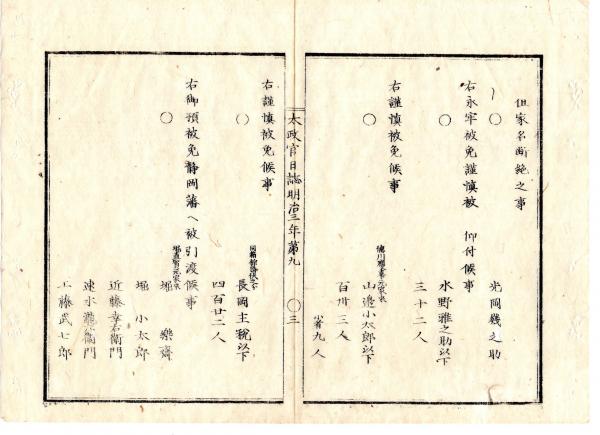 但家名断絶之事
〇
光岡義之助
右永牢被免謹慎被 仰付候事
〇
水野雅之助以下
三十二人
右謹慎被免候事
〇
山邊小太郎以下
百卅三人
小者九人
太政官日誌明治三年第九
〇三
右謹慎被免候事
〇
長岡主税以下
四百廿二人
右御預被免静岡藩へ被引渡候事
〇
堀 樂齋
堀 小太郎
近藤幸右衛門
速水瀧右衛門
工藤武七郎